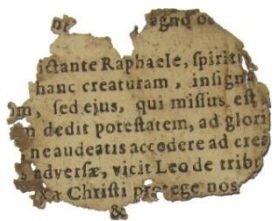 agno
ictante Raphaele, spirit
hanc creaturam, insigna
m, sed ejus, qui missus est
n dedit potestatem, ad glori
ne audeatis accedere ad crea
adversæ, vicit Leo de tribu
Christi protege nos
&